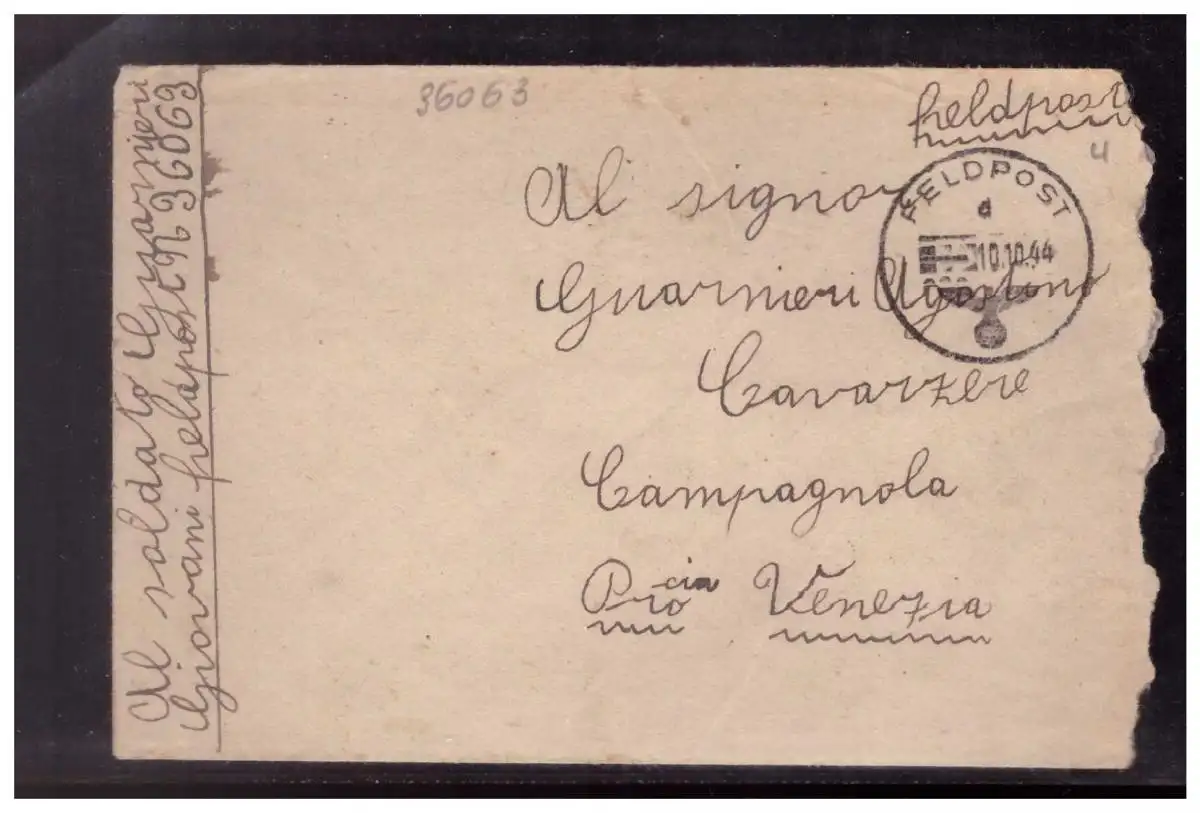 36063
feldpost
4
FELDPOST
d
10.10.44
Al signor
Guarnieri Agostino
Cavarzere
Campagnola
Pro cia Venezia
Al soldato Guarnieri
Giovani feldpost N 36063